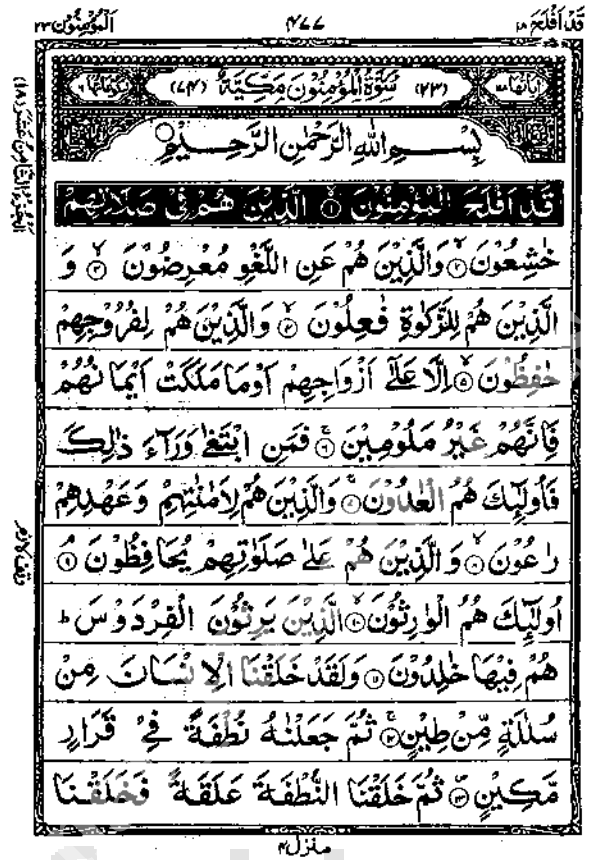 قَدْ اَفْلَحَ ١٨
٤٧٧
اَلْمُؤْمِنُوْن ٢٣
اٰیَاتُهَا ١١٨
(٢٣) سُوْرَةُ الْمُؤْمِنُوْنَ مَكِّيَّةٌ (٧٤)
رُكُوْعَاتُهَا ٦
بِسْمِ اللهِ الرَّحْمٰنِ الرَّحِيْمِ
قَدْ اَفْلَحَ الْمُؤْمِنُوْنَ ۙ﴿١﴾ الَّذِيْنَ هُمْ فِىْ صَلَاتِهِمْ
خٰشِعُوْنَ ۙ﴿٢﴾ وَالَّذِيْنَ هُمْ عَنِ اللَّغْوِ مُعْرِضُوْنَ ۙ﴿٣﴾ وَ
الَّذِيْنَ هُمْ لِلزَّكٰوةِ فٰعِلُوْنَ ۙ﴿٤﴾ وَالَّذِيْنَ هُمْ لِفُرُوْجِهِمْ
حٰفِظُوْنَ ۙ﴿٥﴾ اِلَّا عَلٰٓى اَزْوَاجِهِمْ اَوْمَا مَلَكَتْ اَيْمَانُهُمْ
فَاِنَّهُمْ غَيْرُ مَلُوْمِيْنَ ۚ﴿٦﴾ فَمَنِ ابْتَغٰى وَرَآءَ ذٰلِكَ
فَاُولٰٓئِكَ هُمُ الْعٰدُوْنَ ۚ﴿٧﴾ وَالَّذِيْنَ هُمْ لِاَمٰنٰتِهِمْ وَعَهْدِهِمْ
رٰعُوْنَ ۙ﴿٨﴾ وَالَّذِيْنَ هُمْ عَلٰى صَلَوٰتِهِمْ يُحَافِظُوْنَ ۘ﴿٩﴾
اُولٰٓئِكَ هُمُ الْوٰرِثُوْنَ ۙ﴿١٠﴾ الَّذِيْنَ يَرِثُوْنَ الْفِرْدَوْسَ ؕ
هُمْ فِيْهَا خٰلِدُوْنَ ﴿١١﴾ وَلَقَدْ خَلَقْنَا الْاِنْسَانَ مِنْ
سُلٰلَةٍ مِّنْ طِيْنٍ ۚ﴿١٢﴾ ثُمَّ جَعَلْنٰهُ نُطْفَةً فِىْ قَرَارٍ
مَّكِيْنٍ ۪﴿١٣﴾ ثُمَّ خَلَقْنَا النُّطْفَةَ عَلَقَةً فَخَلَقْنَا
منزل ٤
اَلْجُزْءُ الثَّامِنُ عَشَرَ (١٨)
وقف لازم